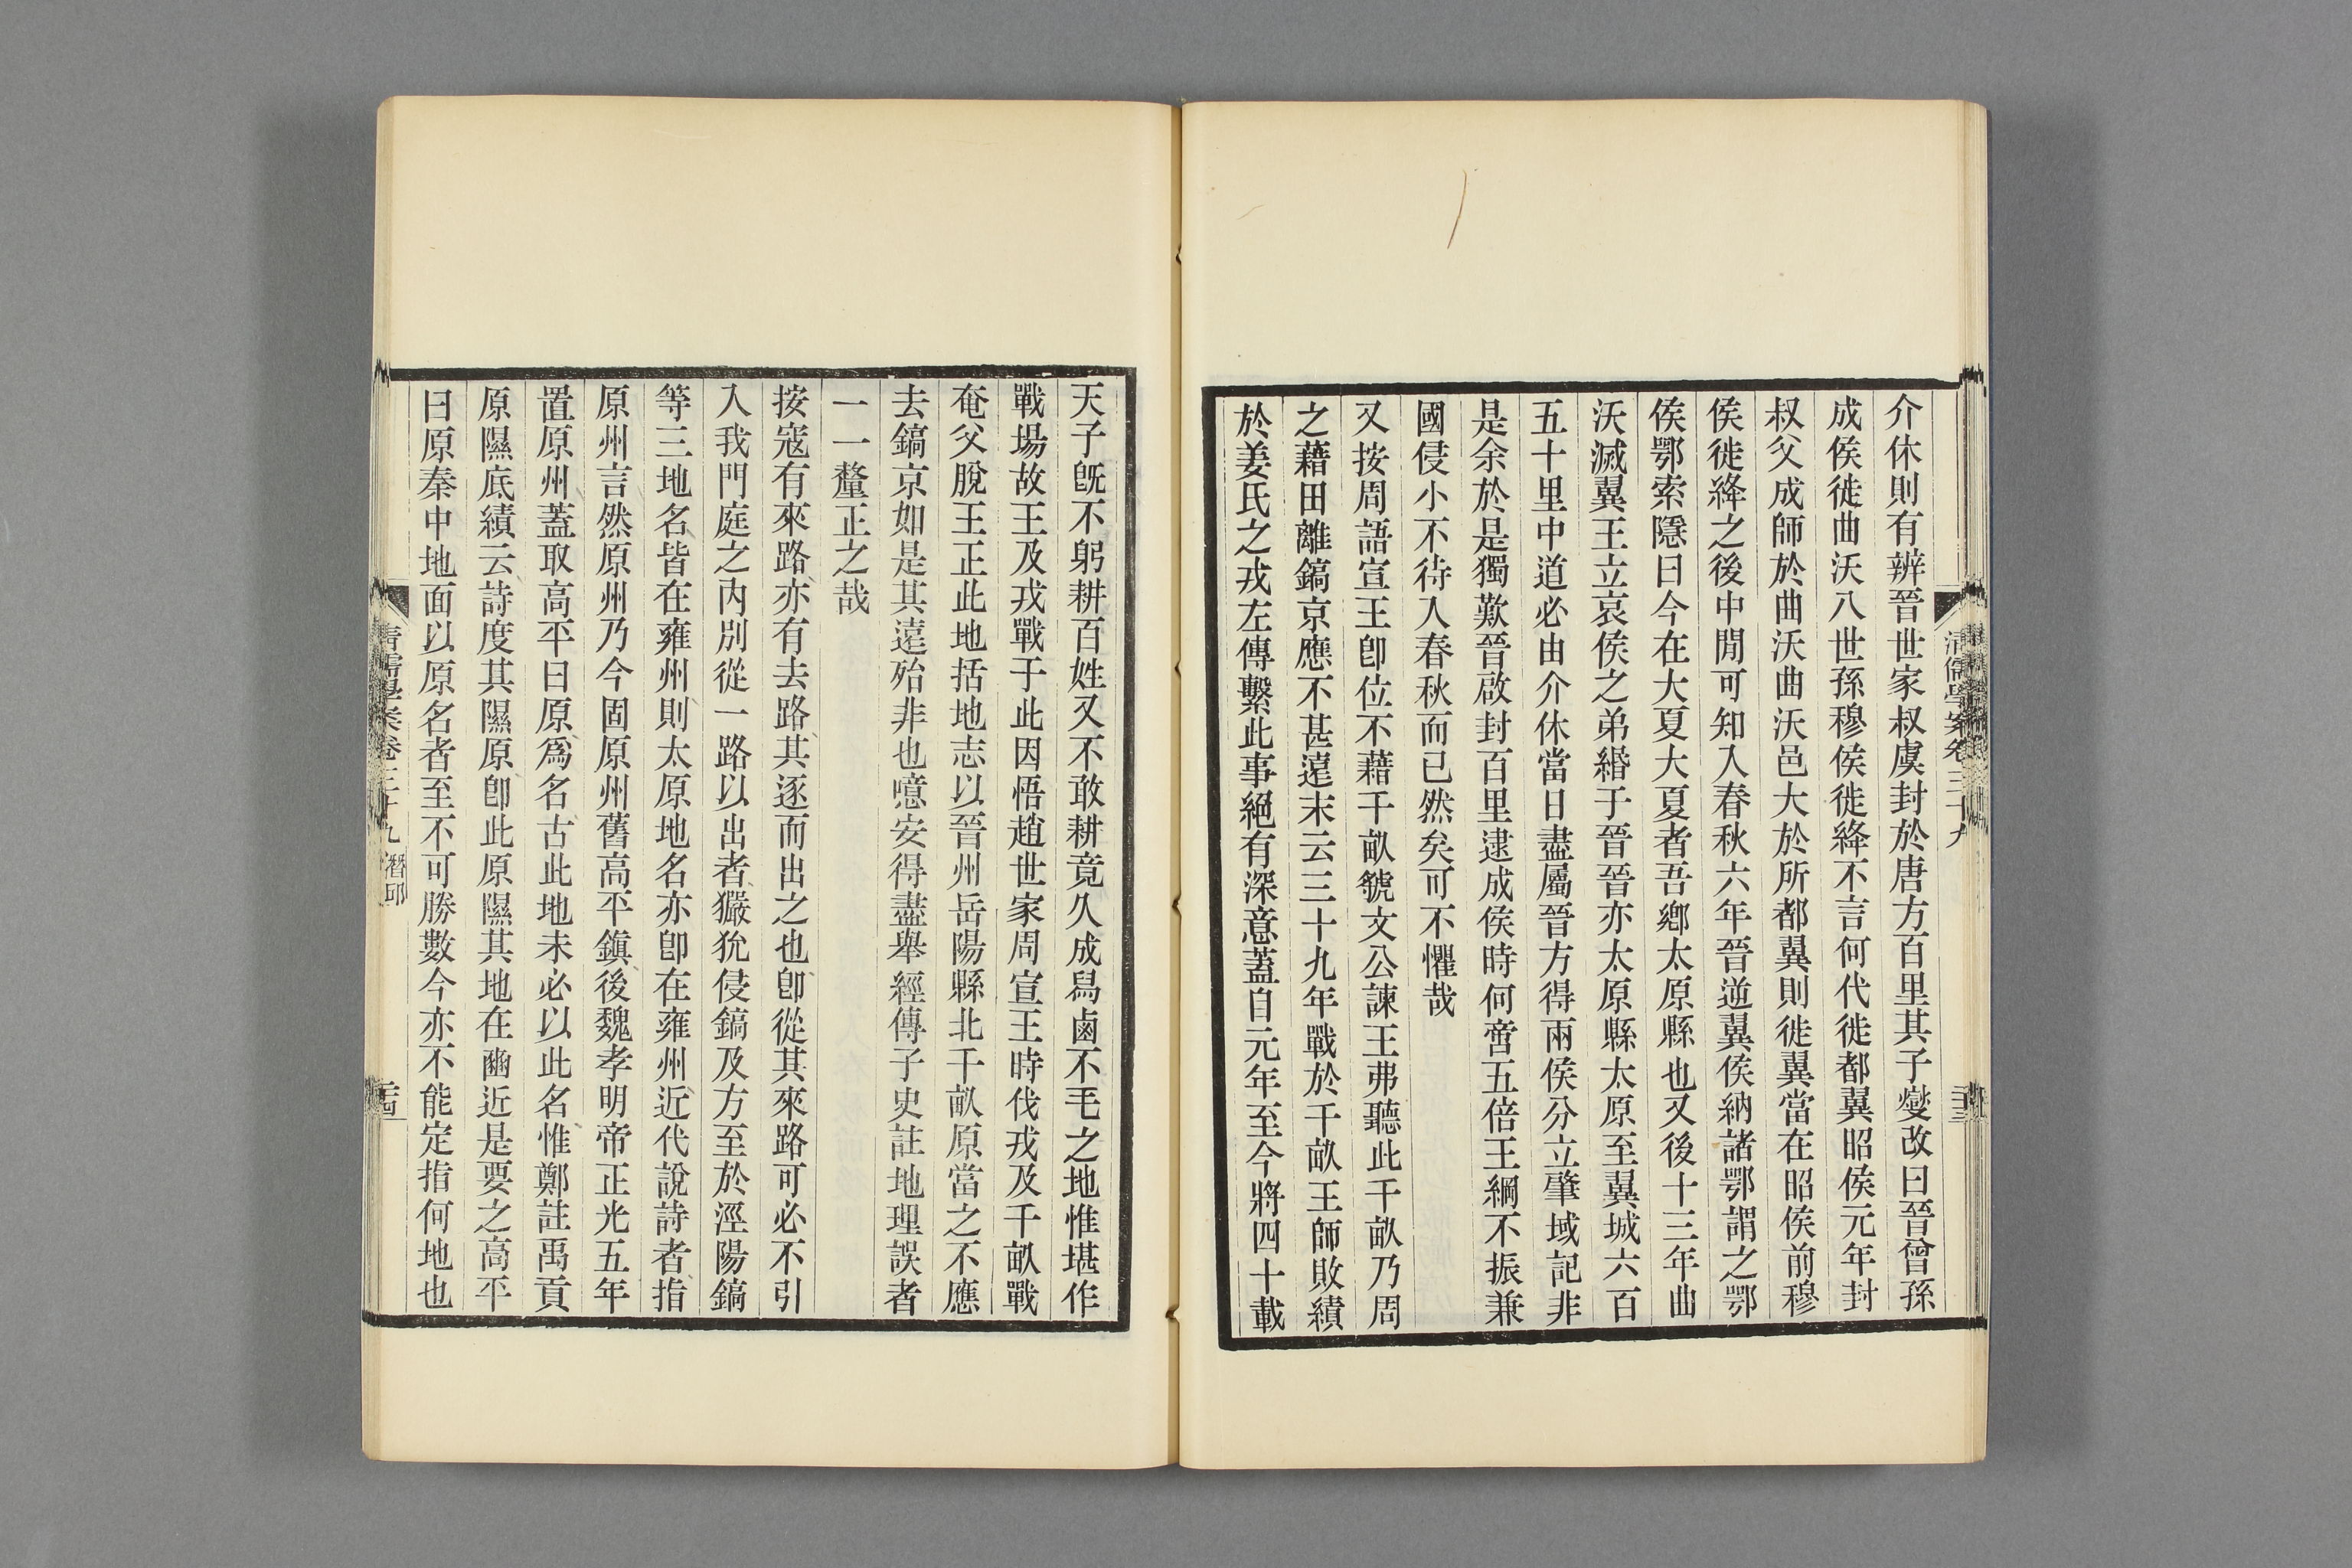 清儒學案卷三十九
二十三
介休則有辨晉世家叔虞封於唐方百里其子燮改曰晉曾孫
成侯徙曲沃八世孫穆侯徙絳不言何代徙都翼昭侯元年封
叔父成師於曲沃曲沃邑大於所都翼則徙翼當在昭侯前穆
侯徙絳之後中閒可知入春秋六年晉逆翼侯納諸鄂謂之鄂
侯鄂索隱曰今在大夏大夏者吾鄉太原縣也又後十三年曲
沃滅翼王立哀侯之弟緡于晉晉亦太原縣太原至翼城六百
五十里中道必由介休當日盡屬晉方得兩侯分立肇域記非
是余於是獨歎晉啟封百里逮成侯時何啻五倍王綱不振兼
國侵小不待入春秋而已然矣可不懼哉
又按周語宣王卽位不藉千畝虢文公諫王弗聽此千畝乃周
之藉田離鎬京應不甚遠末云三十九年戰於千畝王師敗績
於姜氏之戎左傳繫此事絕有深意蓋自元年至今將四十載
天子旣不躬耕百姓又不敢耕竟久成舄鹵不毛之地惟堪作
戰場故王及戎戰于此因悟趙世家周宣王時伐戎及千畝戰
奄父脫王正此地括地志以晉州岳陽縣北千畝原當之不應
去鎬京如是其遠殆非也噫安得盡舉經傳子史註地理誤者
一一釐正之哉
按寇有來路亦有去路其逐而出之也卽從其來路可必不引
入我門庭之內別從一路以出者玁狁侵鎬及方至於涇陽鎬
等三地名皆在雍州則太原地名亦卽在雍州近代說詩者指
原州言然原州乃今固原州舊高平鎮後魏孝明帝正光五年
置原州蓋取高平曰原爲名古此地未必以此名惟鄭註禹貢
原隰底績云詩度其隰原卽此原隰其地在豳近是要之高平
曰原秦中地面以原名者至不可勝數今亦不能定指何地也
清儒學案卷三十九 潛邱
二十四